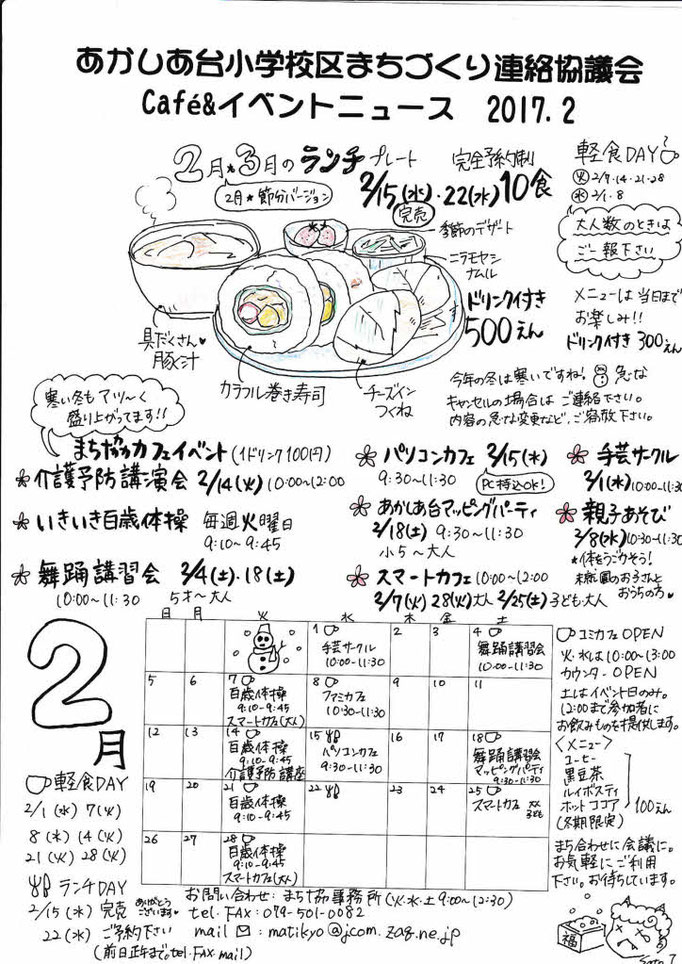 あかしあ台小学校区まちづくり連絡協議会
Café&イベントニュース 2017.2
2月★3日のランチプレート
2月★節分バージョン
完全予約制
2/15(水)・22(水)10食
完売
軽食DAY
火 2/7・14・21・28
水 2/1・8
大人数のときは
ご一報下さい
メニューは当日まで
お楽しみ!!
ドリンク付き 300えん
季節のデザート
ニラモヤシ
ナムル
ドリンク付き
500えん
具だくさん♥
豚汁
カラフル巻き寿司
チーズイン
つくね
今年の冬は寒いですね! 急な
キャンセルの場合は ご連絡下さい。
内容の急な変更など、ご容赦下さい。
寒い冬もアツ〜く
盛り上がってます!!
まち協カフェイベント(1ドリンク100円)
介護予防講演会 2/14(火) 10:00~12:00
いきいき百歳体操 毎週火曜日
9:10~9:45
舞踊講習会 2/4(土)・18(土)
10:00~11:30 5才~大人
パソコンカフェ 2/15(水)
9:30~11:30 PC持込OK!
あかしあ台マッピングパーティ
2/18(土) 9:30~11:30
小5~大人
スマートカフェ 10:00~12:00
2/7(火) 28(火)大人 2/25(土)子ども・大人
手芸サークル
2/1(水)10:00~11:30
親子あそび
2/8(水)10:30~11:30
★体をうごかそう!
未就園のお子さんと
おうちの方♥
2月
日 月 火 水 木 金 土
1 手芸サークル 10:00~11:30
2
3
4 舞踊講習会 10:00~11:30
5
6
7 百歳体操 9:10~9:45 スマートカフェ(大人)
8 ファミカフェ 10:30~11:30
9
10
11
12
13
14 百歳体操 9:10~9:45 介護予防講座
15 パソコンカフェ 9:30~11:30
16
17
18 舞踊講習会 マッピングパーティ 9:30~11:30
19
20
21 百歳体操 9:10~9:45
22
23
24
25 スマートカフェ 大人 子ども
26
27
28 百歳体操 9:10~9:45 スマートカフェ(大人)
コミカフェOPEN
火・水は10:00~13:00
カウンターOPEN
土はイベント日のみ。
12:00まで参加者に
お飲みものを提供します。
〈メニュー〉
コーヒー
黒豆茶
ルイボスティ
ホットココア
(冬期限定)
100えん
まち合わせに会議に。
お気軽にご利用
下さい。お待ちしています。
軽食DAY
2/1(水) 7(火)
8(水) 14(火)
21(火) 28(火)
ランチDAY
2/15(水) 完売 ありがとうございます♥
22(水) ご予約下さい
(前日正午まで。tel・FAX・mail)
お問い合わせ:まち協事務所(火・水・土 9:00~12:30)
tel・FAX:079-501-0082
mail:matikyo@jcom.zaq.ne.jp
福